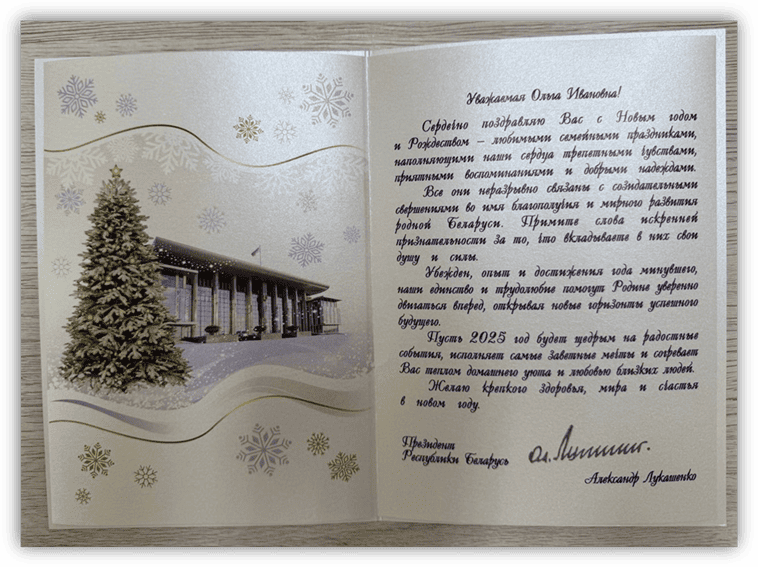 Уважаемая Ольга Ивановна!
Сердечно поздравляю Вас с Новым годом
и Рождеством – любимыми семейными праздниками,
наполняющими наши сердца трепетными чувствами,
приятными воспоминаниями и добрыми надеждами.
Все они неразрывно связаны с созидательными
свершениями во имя благополучия и мирного развития
родной Беларуси. Примите слова искренней
признательности за то, что вкладываете в них свои
душу и силы.
Убежден, опыт и достижения года минувшего,
наши единство и трудолюбие помогут Родине уверенно
двигаться вперед, открывая новые горизонты успешного
будущего.
Пусть 2025 год будет щедрым на радостные
события, исполняет самые заветные мечты и согревает
Вас теплом домашнего уюта и любовью близких людей.
Желаю крепкого здоровья, мира и счастья
в новом году.
Президент
Республики Беларусь
Александр Лукашенко